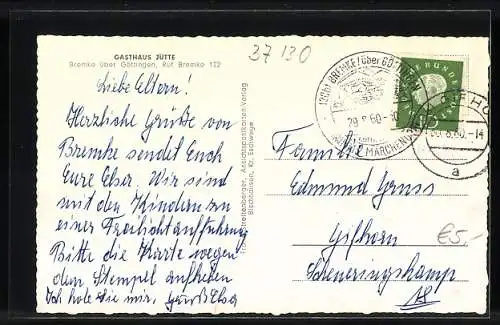 GASTHAUS JÜTTE
Bremke über Göttingen, Ruf Bremke 122
37130
Liebe Eltern!
Herzliche Grüße von
Bremke sendet Euch
Eure Elsa. Wir sind
mit den Kindern zu
einer Freilichtaufführung
Bitte die Karte wegen
dem Stempel aufheben
Ich hole sie mir, Gruß Elsa
Ansichtspostkarten-Verlag
Bischhausen, Kr. Eschwege
BREMKE / über GÖTTINGEN
29.8.60
MÄRCHEN
.8.60.-14
a
Familie
Edmund Gruss
Gifhorn
Scheuringskamp
18
€5,-